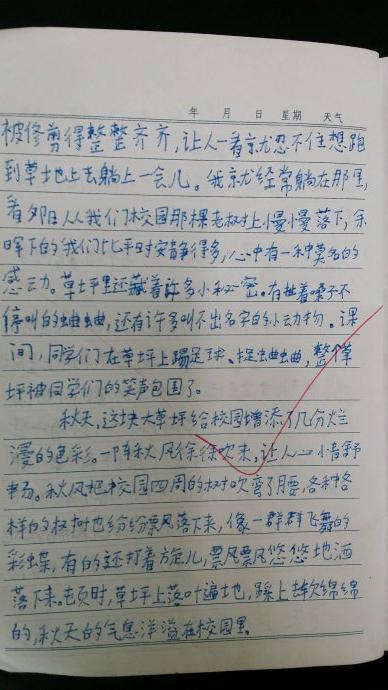 年 月 日 星期 天气
被修剪得整整齐齐,让人一看就忍不住想跑
到草地上去躺上一会儿。我就经常躺在那里,
看夕阳从我们校园那棵老树上慢慢落下,余
晖下的我们比平时安静得多,心中有一种莫名的
感动。草坪里还藏着许多小秘密。有扯着嗓子不
停叫的蛐蛐,还有许多叫不出名字的小动物。课
间,同学们在草坪上踢足球、捉蛐蛐,整个草
坪被同学们的笑声包围了。
秋天,这块大草坪给校园增添了几分烂
漫的色彩。一阵秋风徐徐吹来,让人心情舒
畅。秋风把校园四周的树吹弯了腰,各种各
样的树叶也纷纷飘落下来,像一群群飞舞的
彩蝶,有的还打着旋儿,飘飘悠悠地洒
落下来。顿时,草坪上落叶遍地,踩上去软绵绵
的,秋天的气息洋溢在校园里。